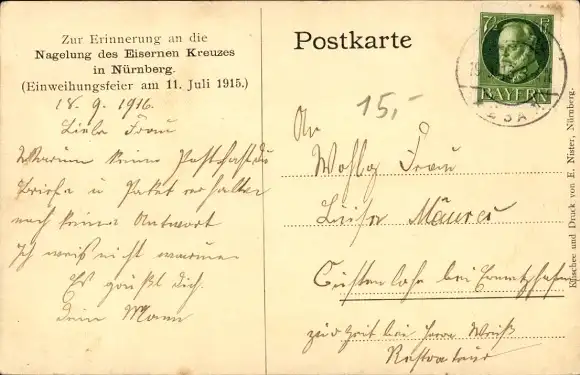 Zur Erinnerung an die
Nagelung des Eisernen Kreuzes
in Nürnberg.
(Einweihungsfeier am 11. Juli 1915.)
18.9.1916.
Liebe Frau
Warum keine Postschaft
Briefe u Paket erhalten
noch keine Antwort
Ich weis nicht warum
Es grüßt dich
dein Mann
Postkarte
15,-
An
Frau
Luise
bei
zur Zeit bei Herrn Weiß
7½ Pf
BAYERN
Klischee und Druck von E. Nister, Nürnberg.